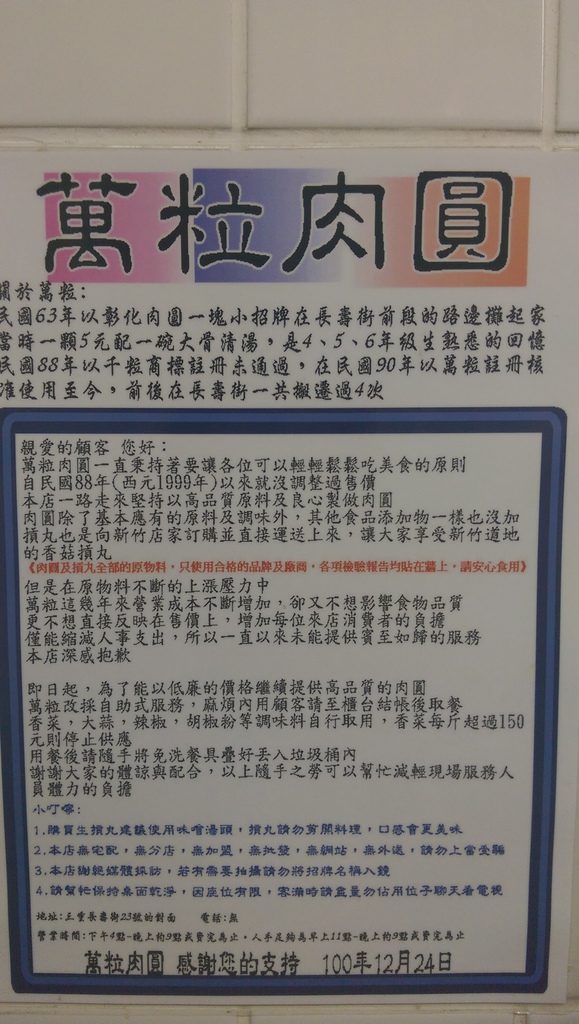 萬粒肉圓
關於萬粒:
民國63年以彰化肉圓一塊小招牌在長壽街前段的路邊攤起家
當時一顆5元配一碗大骨清湯，是4、5、6年級生熟悉的回憶
民國88年以千粒商標註冊未通過，在民國90年以萬粒註冊核
准使用至今，前後在長壽街一共搬遷過4次
親愛的顧客 您好:
萬粒肉圓一直秉持著要讓各位可以輕輕鬆鬆吃美食的原則
自民國88年(西元1999年)以來就沒調整過售價
本店一路走來堅持以高品質原料及良心製做肉圓
肉圓除了基本應有的原料及調味外，其他食品添加物一樣也沒加
摃丸也是向新竹店家訂購並直接運送上來，讓大家享受新竹道地
的香菇摃丸
《肉圓及摃丸全部的原物料，只使用合格的品牌及廠商，各項檢驗報告均貼在牆上，請安心食用》
但是在原物料不斷的上漲壓力中
萬粒這幾年來營業成本不斷增加，卻又不想影響食物品質
更不想直接反映在售價上，增加每位來店消費者的負擔
僅能縮減人事支出，所以一直以來未能提供賓至如歸的服務
本店深感抱歉
即日起，為了能以低廉的價格繼續提供高品質的肉圓
萬粒改採自助式服務，麻煩內用顧客請至櫃台結帳後取餐
香菜，大蒜，辣椒，胡椒粉等調味料自行取用，香菜每斤超過150
元則停止供應
用餐後請隨手將免洗餐具疊好丟入垃圾桶內
謝謝大家的體諒與配合，以上隨手之勞可以幫忙減輕現場服務人
員體力的負擔
小叮嚀:
1.購買生摃丸建議使用味噌湯頭，摃丸請勿剪開料理，口感會更美味
2.本店無宅配，無分店，無加盟，無批發，無網站，無外送，請勿上當受騙
3.本店謝絕媒體採訪，若有需要拍攝請勿將招牌名稱入鏡
4.請幫忙保持桌面乾淨，因座位有限，客滿時請盡量勿佔用位子聊天看電視
地址:三重長壽街23號的對面 電話:無
營業時間:下午4點-晚上約9點或賣完為止，人手足夠為早上11點-晚上約9點或賣完為止
萬粒肉圓 感謝您的支持 100年12月24日